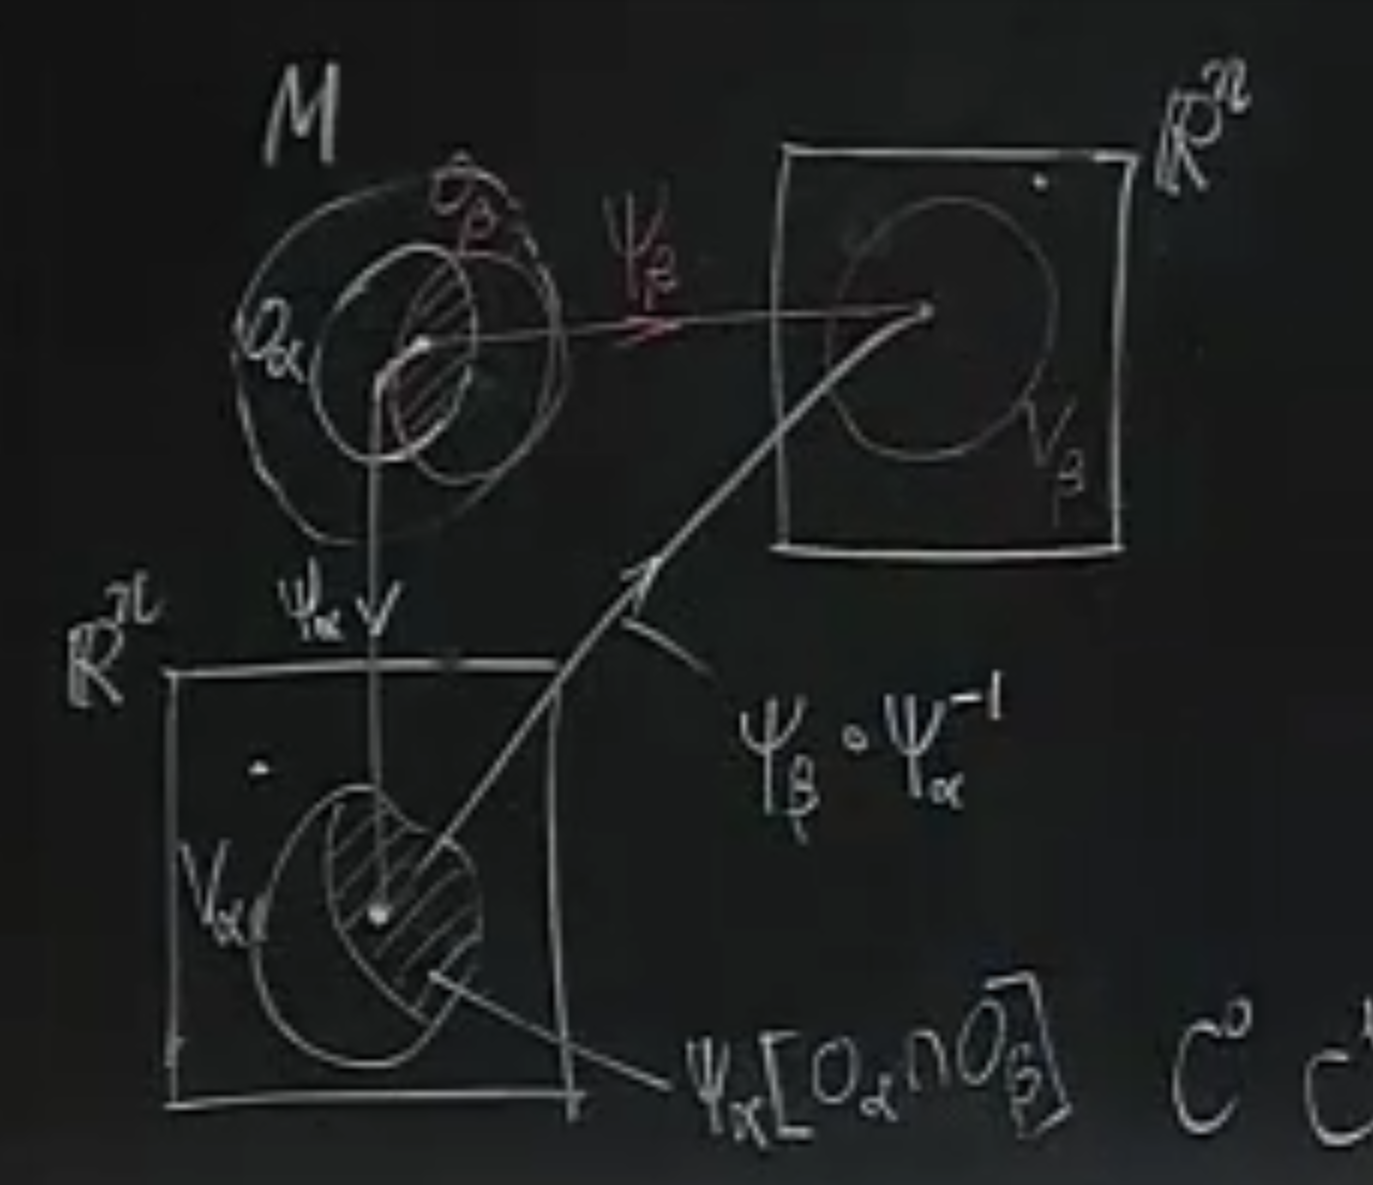 M
ℝⁿ
O_β
ψ_β
O_α
V_β
ψ_α
ℝⁿ
ψ_β ∘ ψ_α⁻¹
V_α
ψ_α[O_α ∩ O_β] C⁰